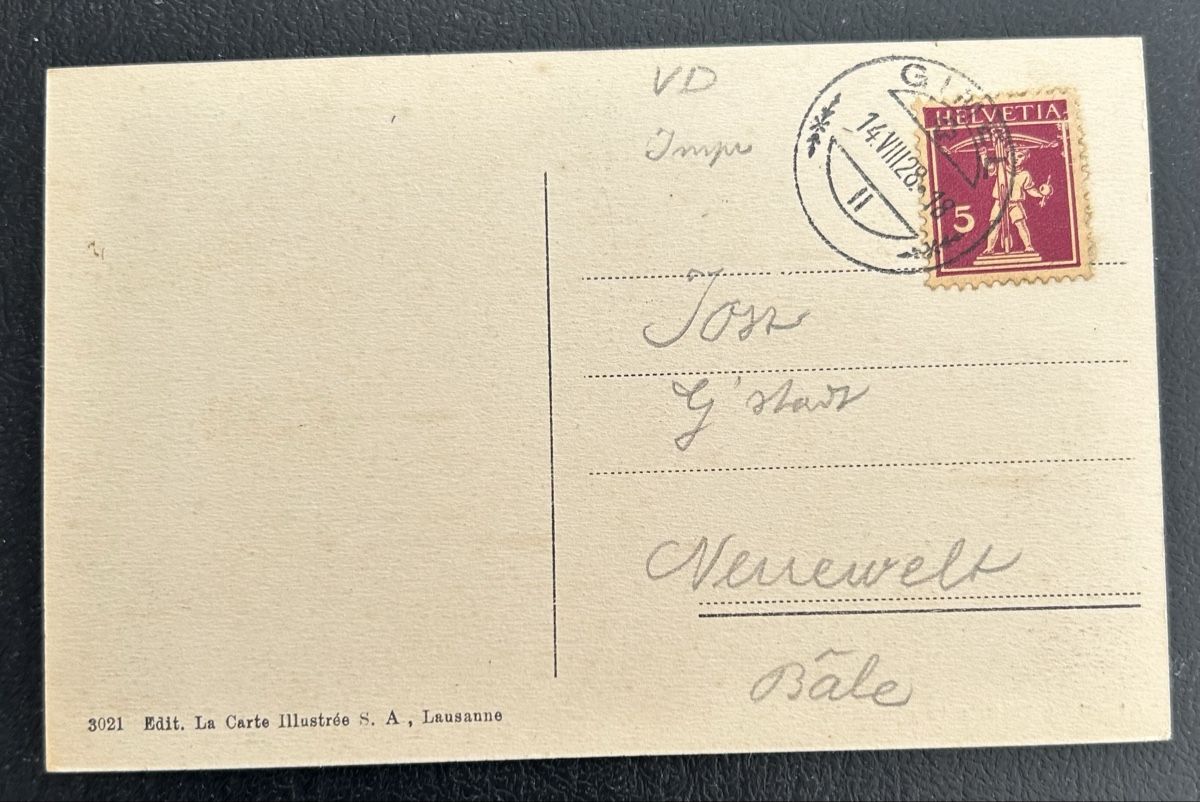 VD
Impr
GIMEL
14.VIII.28.-18
II
HELVETIA
5
Jost
G'stadt
Neuewelt
Bâle
3021 Edit. La Carte Illustrée S. A., Lausanne